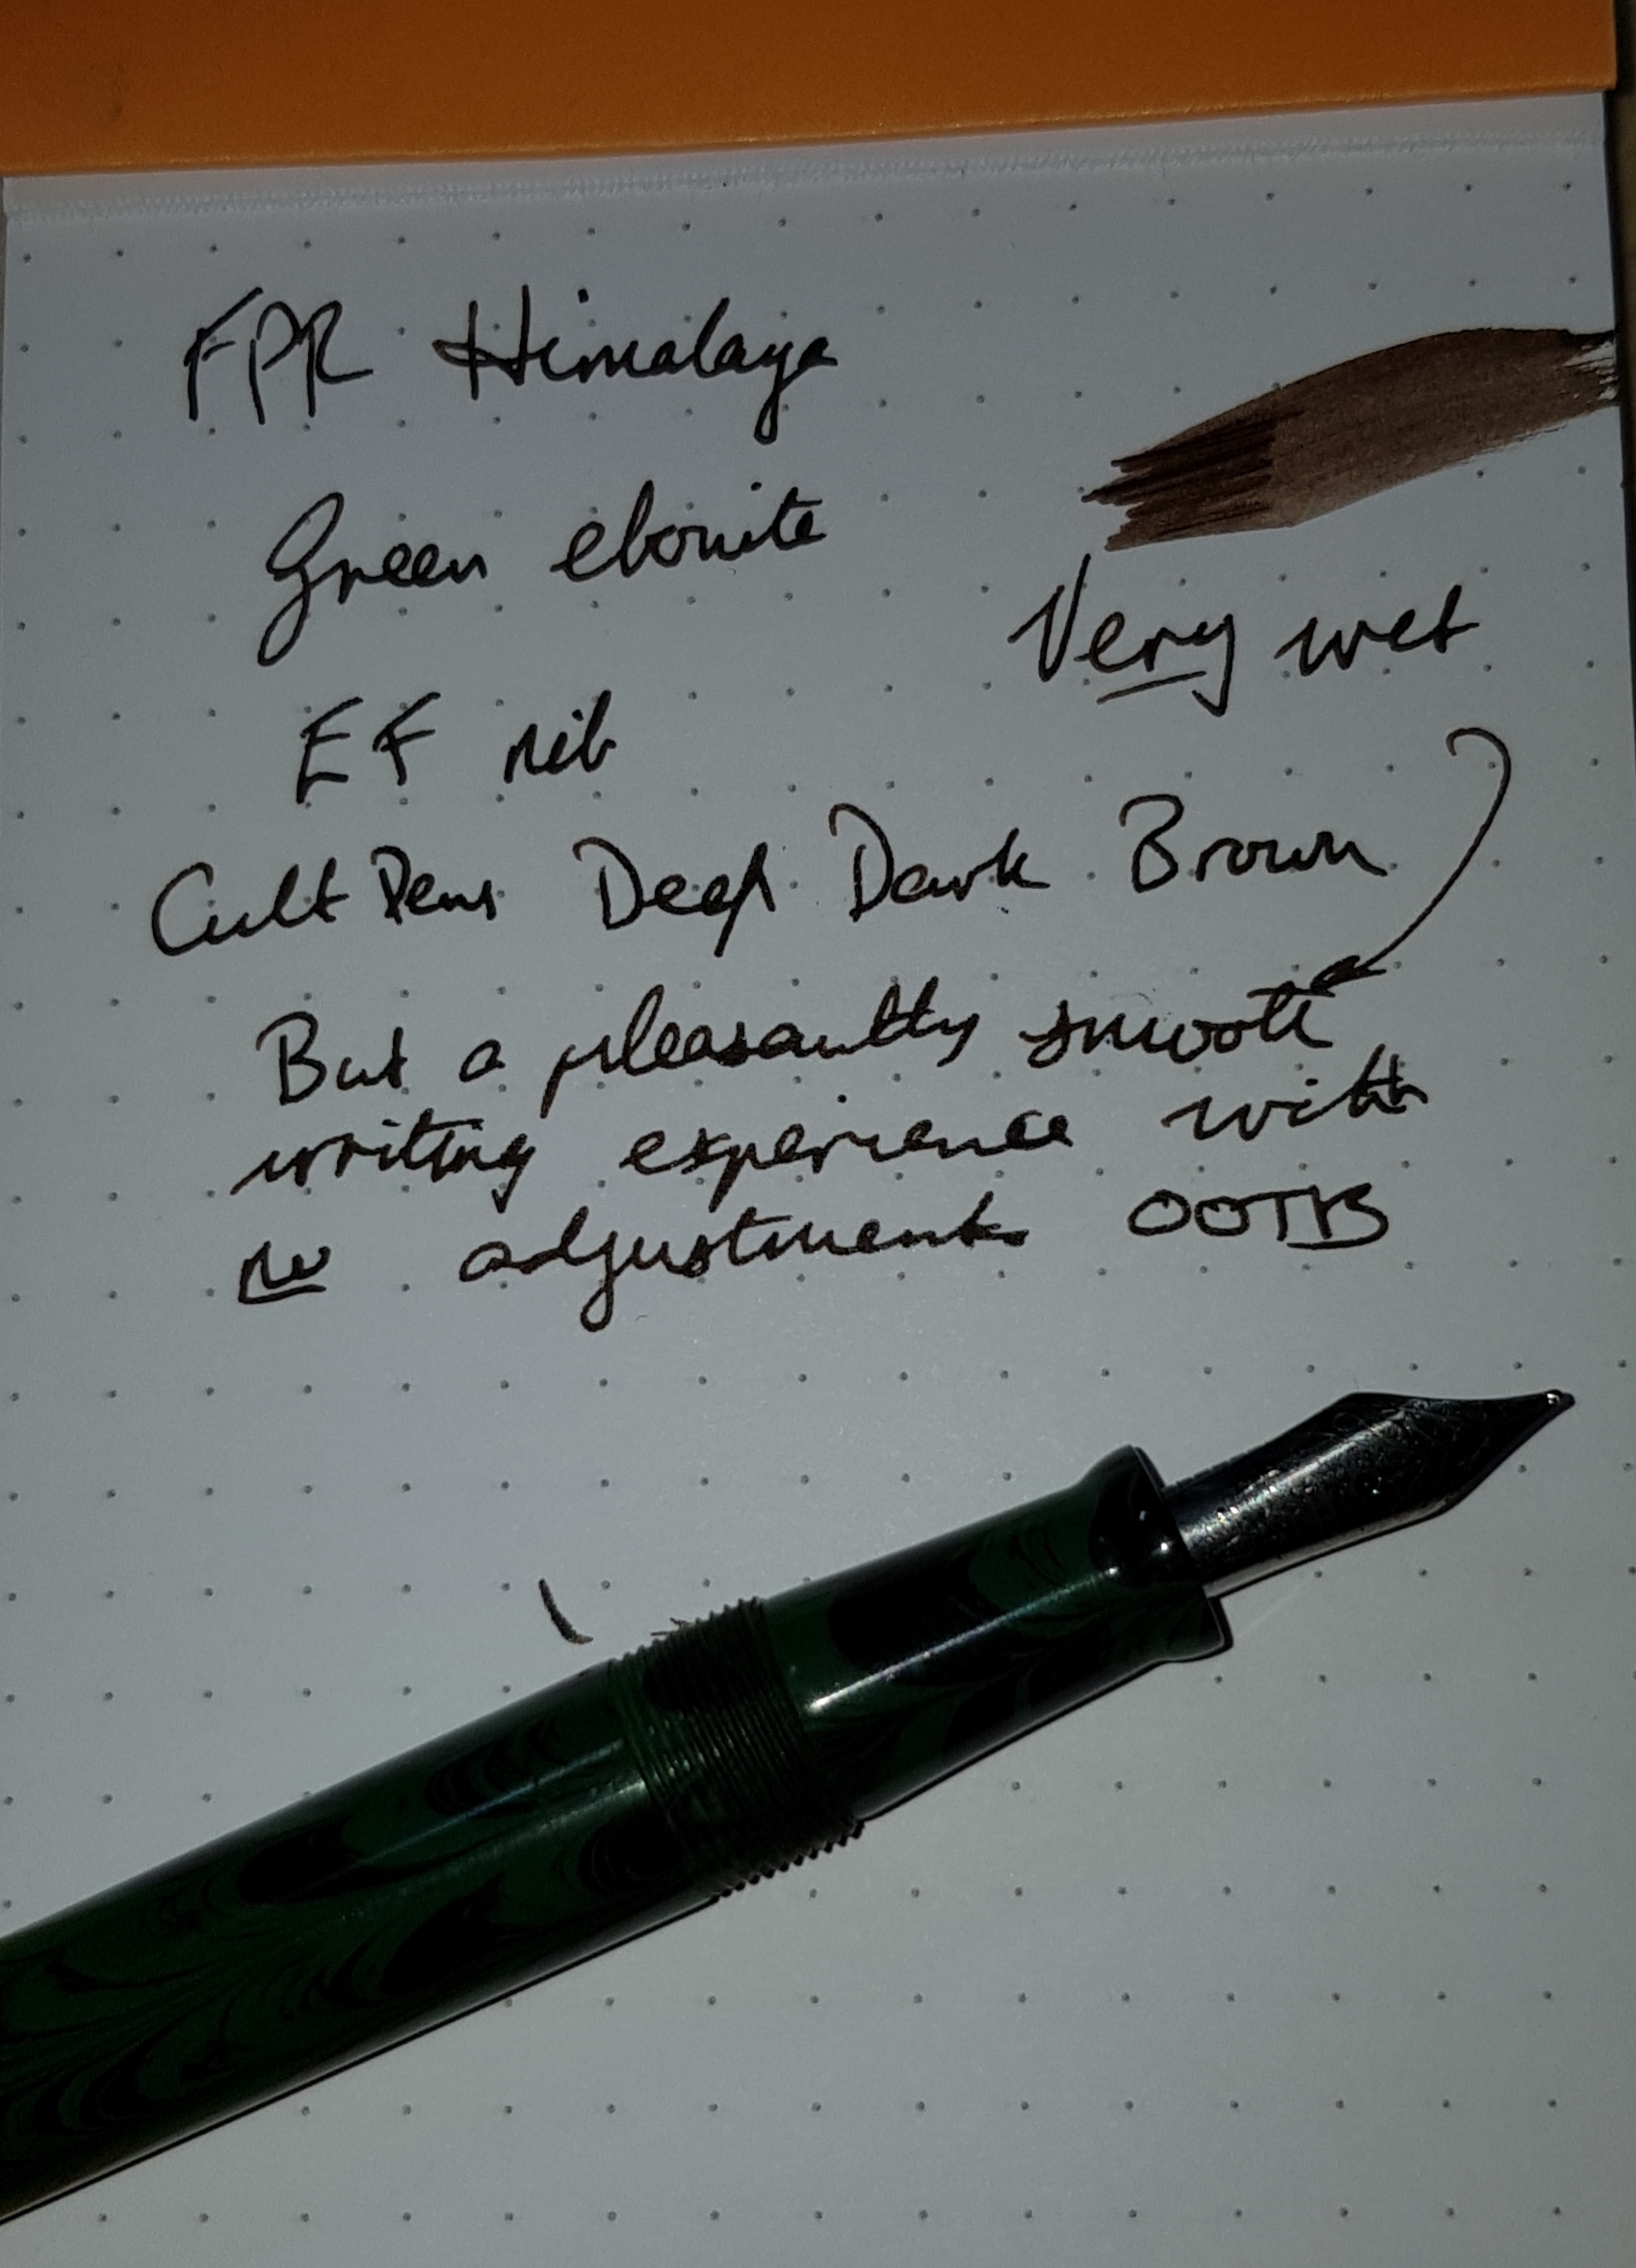 FPR Himalaya
Green ebonite
Very wet
EF nib
Cult Pens Deep Dark Brown
But a pleasantly smooth
writing experience with
no adjustments OOTB